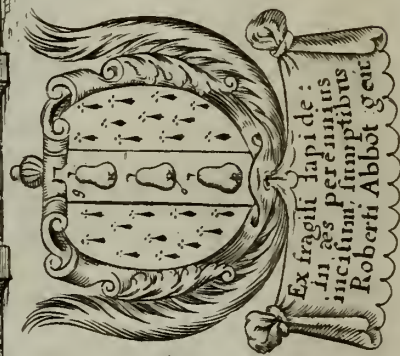 Ex fragili lapide :
in æs perennius
incisum sumptibus
Roberti Abbot gent